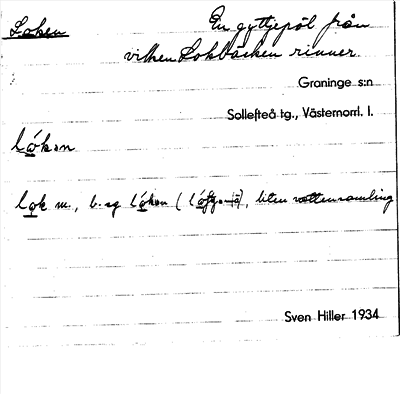 Loken En gyttjepöl från
vilken Lokbäcken rinner.
Graninge s:n
Sollefteå tg., Västernorrl. l.
lókən
lok m., b. sg lókən ( ), liten vattensamling
Sven Hiller 1934